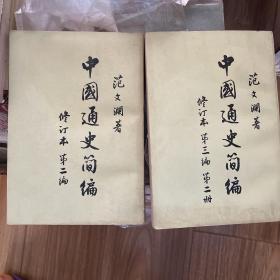 范文澜著
中國通史简编
修订本 第二编
范文澜著
中國通史简编
修订本 第三编 第二册